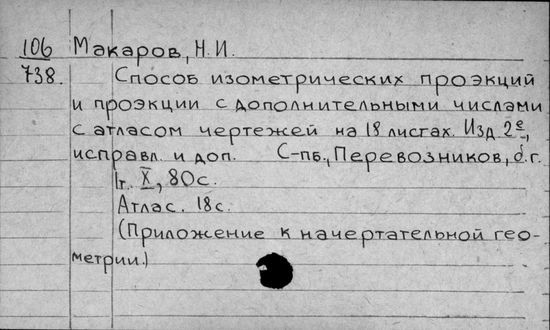 106 Макаров, Н.И.
738. Способ изометрических проэкций
и проэкции с дополнительными числами
с атласом чертежей на 18 листах. Изд 2е,
исправл. и доп. С-пб., Перевозников, б.г.
1т. X, 80с.
Атлас. 18с.
(Приложение к начертательной гео-
метрии.)